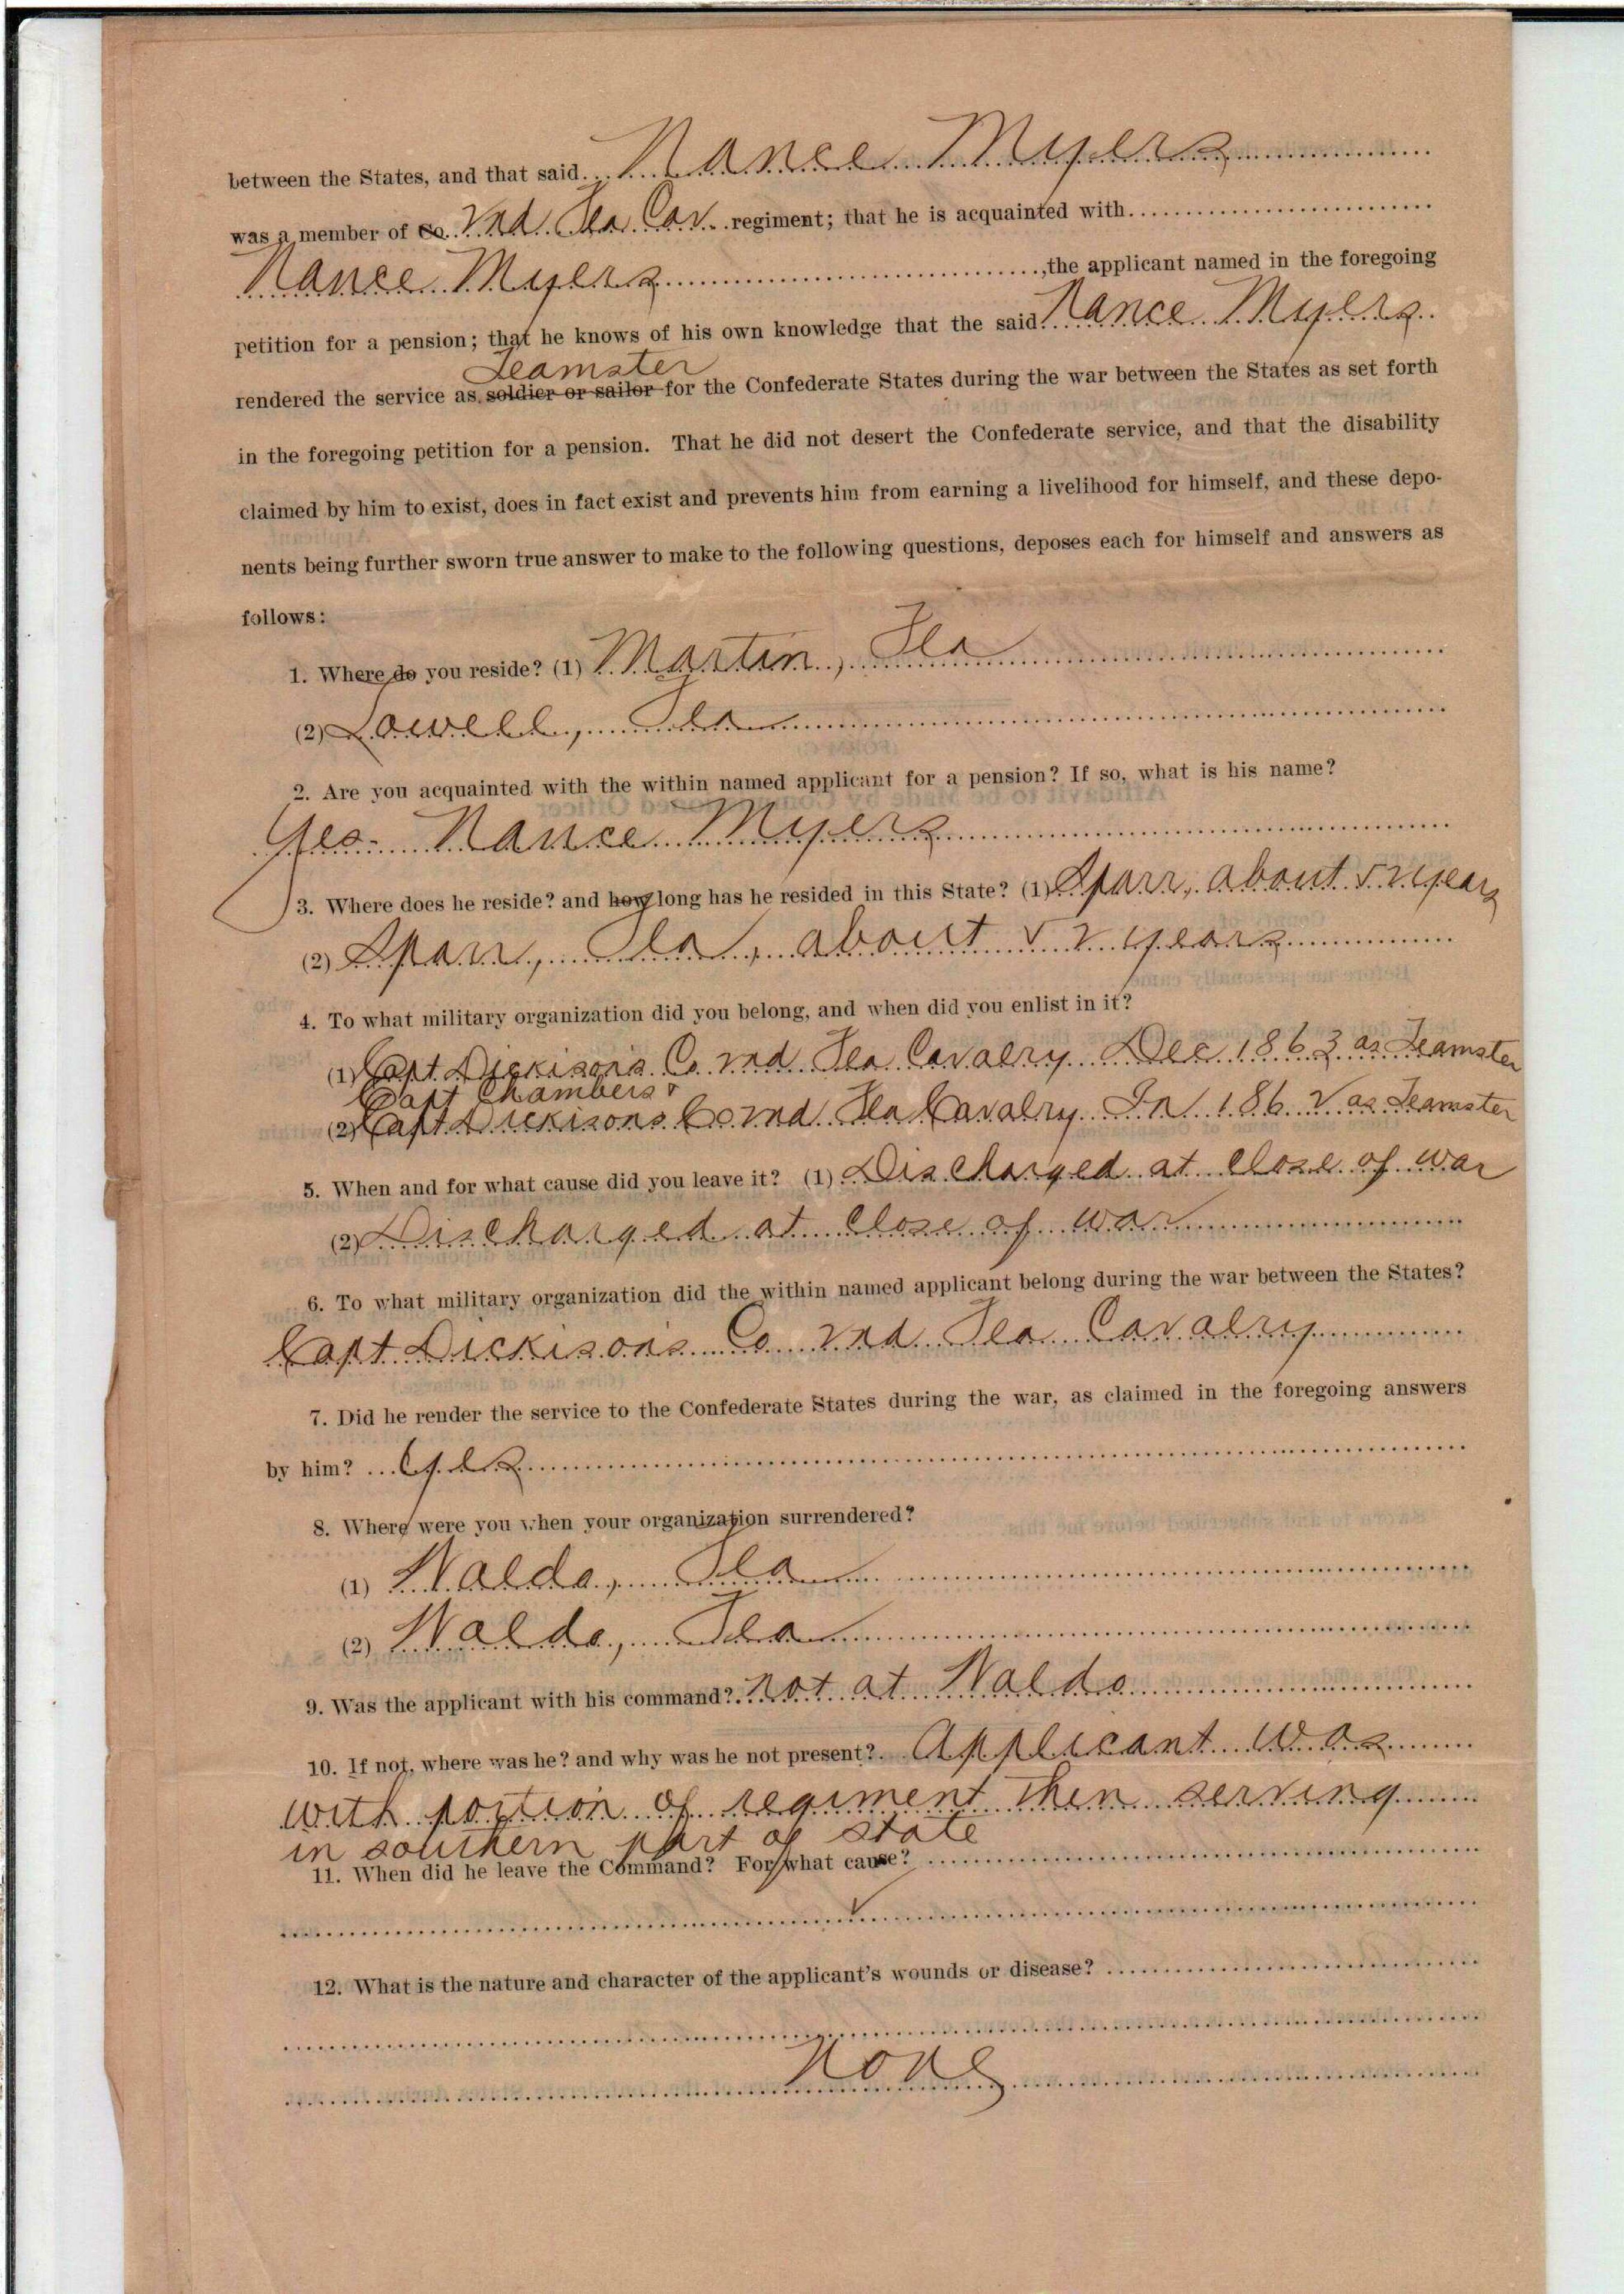 between the States, and that said Nance Myers
was a member of Co. 2nd Fla Cav. regiment; that he is acquainted with
Nance Myers, the applicant named in the foregoing
petition for a pension; that he knows of his own knowledge that the said Nance Myers
Teamster
rendered the service as soldier or sailor for the Confederate States during the war between the States as set forth
in the foregoing petition for a pension. That he did not desert the Confederate service, and that the disability
claimed by him to exist, does in fact exist and prevents him from earning a livelihood for himself, and these depo-
nents being further sworn true answer to make to the following questions, deposes each for himself and answers as
follows:
1. Where do you reside? (1) Martin, Fla
(2) Lowell, Fla
2. Are you acquainted with the within named applicant for a pension? If so, what is his name?
Yes - Nance Myers
3. Where does he reside? and how long has he resided in this State? (1) Sparr, about 52 years
(2) Sparr, Fla, about 52 years
4. To what military organization did you belong, and when did you enlist in it?
(1) Capt Dickison's Co 2nd Fla Cavalry Dec 1863 as Teamster
Capt Chambers &
(2) Capt Dickisons Co 2nd Fla Cavalry In 1862 as Teamster
5. When and for what cause did you leave it? (1) Discharged at close of war
(2) Discharged at close of war
6. To what military organization did the within named applicant belong during the war between the States?
Capt Dickison's Co 2nd Fla Cavalry
7. Did he render the service to the Confederate States during the war, as claimed in the foregoing answers
by him? Yes
8. Where were you when your organization surrendered?
(1) Waldo, Fla
(2) Waldo, Fla
9. Was the applicant with his command? Not at Waldo
10. If not, where was he? and why was he not present? Applicant was
with portion of regiment then serving
in southern part of state
11. When did he leave the Command? For what cause?
12. What is the nature and character of the applicant's wounds or disease?
None